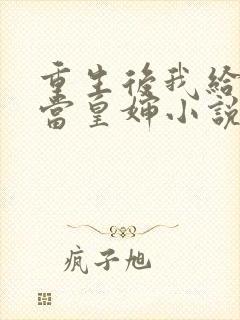 重生後我給
當皇婶小說
疯子旭